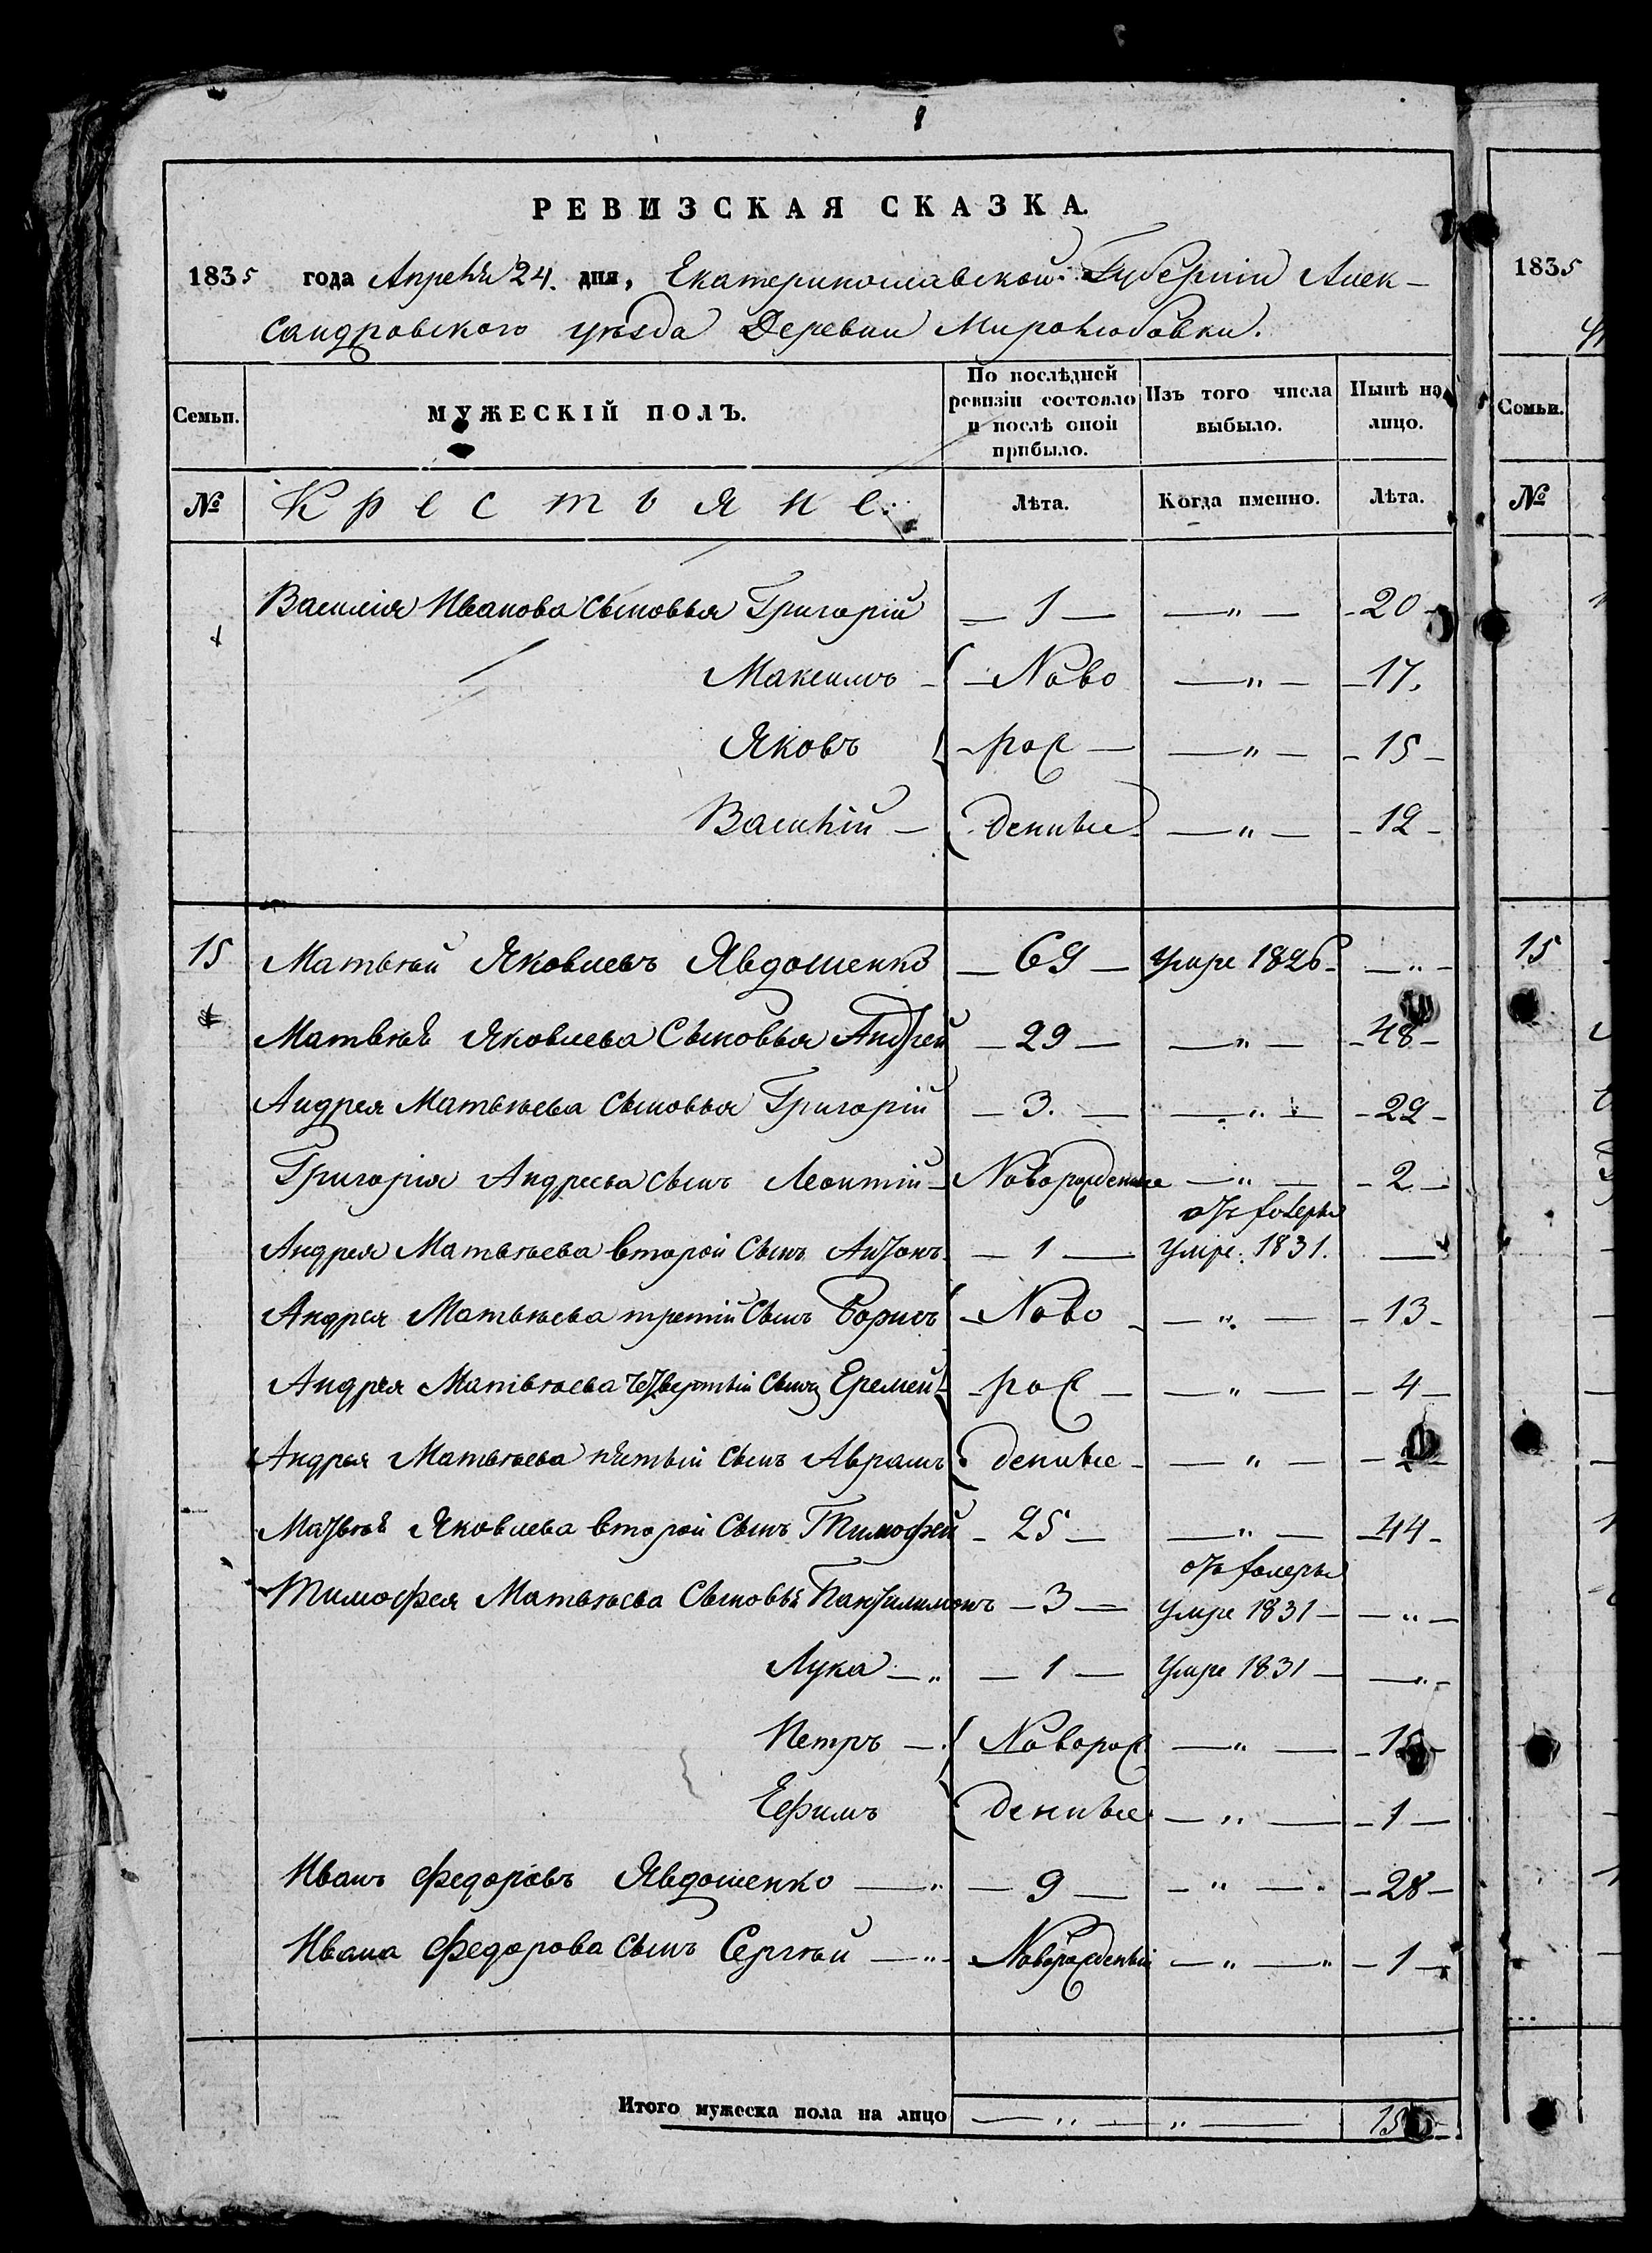 РЕВИЗСКАЯ СКАЗКА.
1835 года Апреля 24. дня, Екатеринославской Губерніи Алек-
сандровскаго уѣзда Деревни Миролюбовки.
Семьи. МУЖЕСКІЙ ПОЛЪ. По послѣдней ревизіи состояло и послѣ оной прибыло. Изъ того числа выбыло. Нынѣ на лицо.
№ Крестьяне: Лѣта. Когда именно. Лѣта.
Василія Иванова Сыновья Григорій — 1 — — „ — - 20 -
Максимъ - Ново — „ — - 17.
Яковъ - рож — — „ — - 15 -
Василій — денные — „ — - 12 -
15 Матвѣй Яковлевъ Явдошенко — 69 — Умре 1826 - — „ -
Матвѣя Яковлева Сыновья Андрей - 29 — — „ — - 48 -
Андрея Матвѣева Сыновья Григорій - 3. — — „ — - 29 -
Григорія Андреева сынъ Леонтій - Новорожденные — „ — - 2 -
отъ холеры
Андрея Матвѣева второй Сынъ Антонъ - — 1 — Умре. 1831. —
Андрея Матвѣева третій Сынъ Борисъ - Ново - — „ — - 13 -
Андрея Матвѣева Четвертый Сынъ Еремей - - рож — — „ — - 4 -
Андрея Матвѣева пятый Сынъ Аврамъ денные - — „ —
Матвѣя Яковлева второй Сынъ Тимофей - 25 — — „ — - 44 -
отъ холеры
Тимофея Матвѣева Сыновья Пантилимонъ — 3 — Умре 1831 — — „ —
Лука — „ — 1 — Умре 1831 — — „ -
Петръ — Еоворож — „ — - 15 -
Ефимъ денные — „ — - 1 —
Иванъ Федоровъ Явдошенко — „ — 9 — - „ — - 28 -
Ивана Федорова сынъ Сергѣй — „ - Новорожденый — „ — „ - 1 -
Итого мужеска пола на лицо — „ — „ — 15
1835
Семьи.
№
15